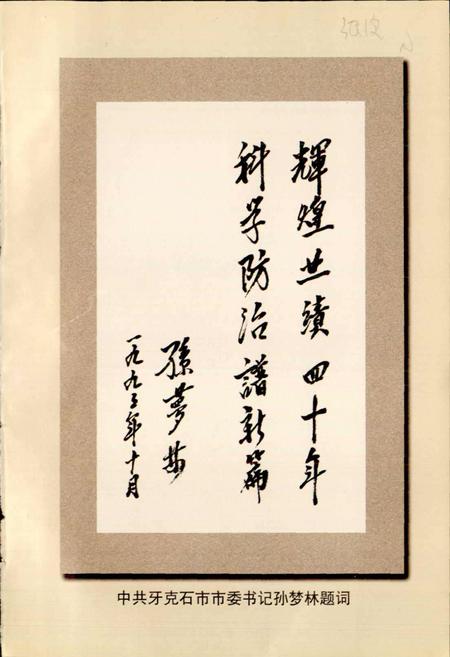 輝煌业績四十年
科学防治譜新篇
孫夢林
一九九三年十月
中共牙克石市市委书记孙梦林题词